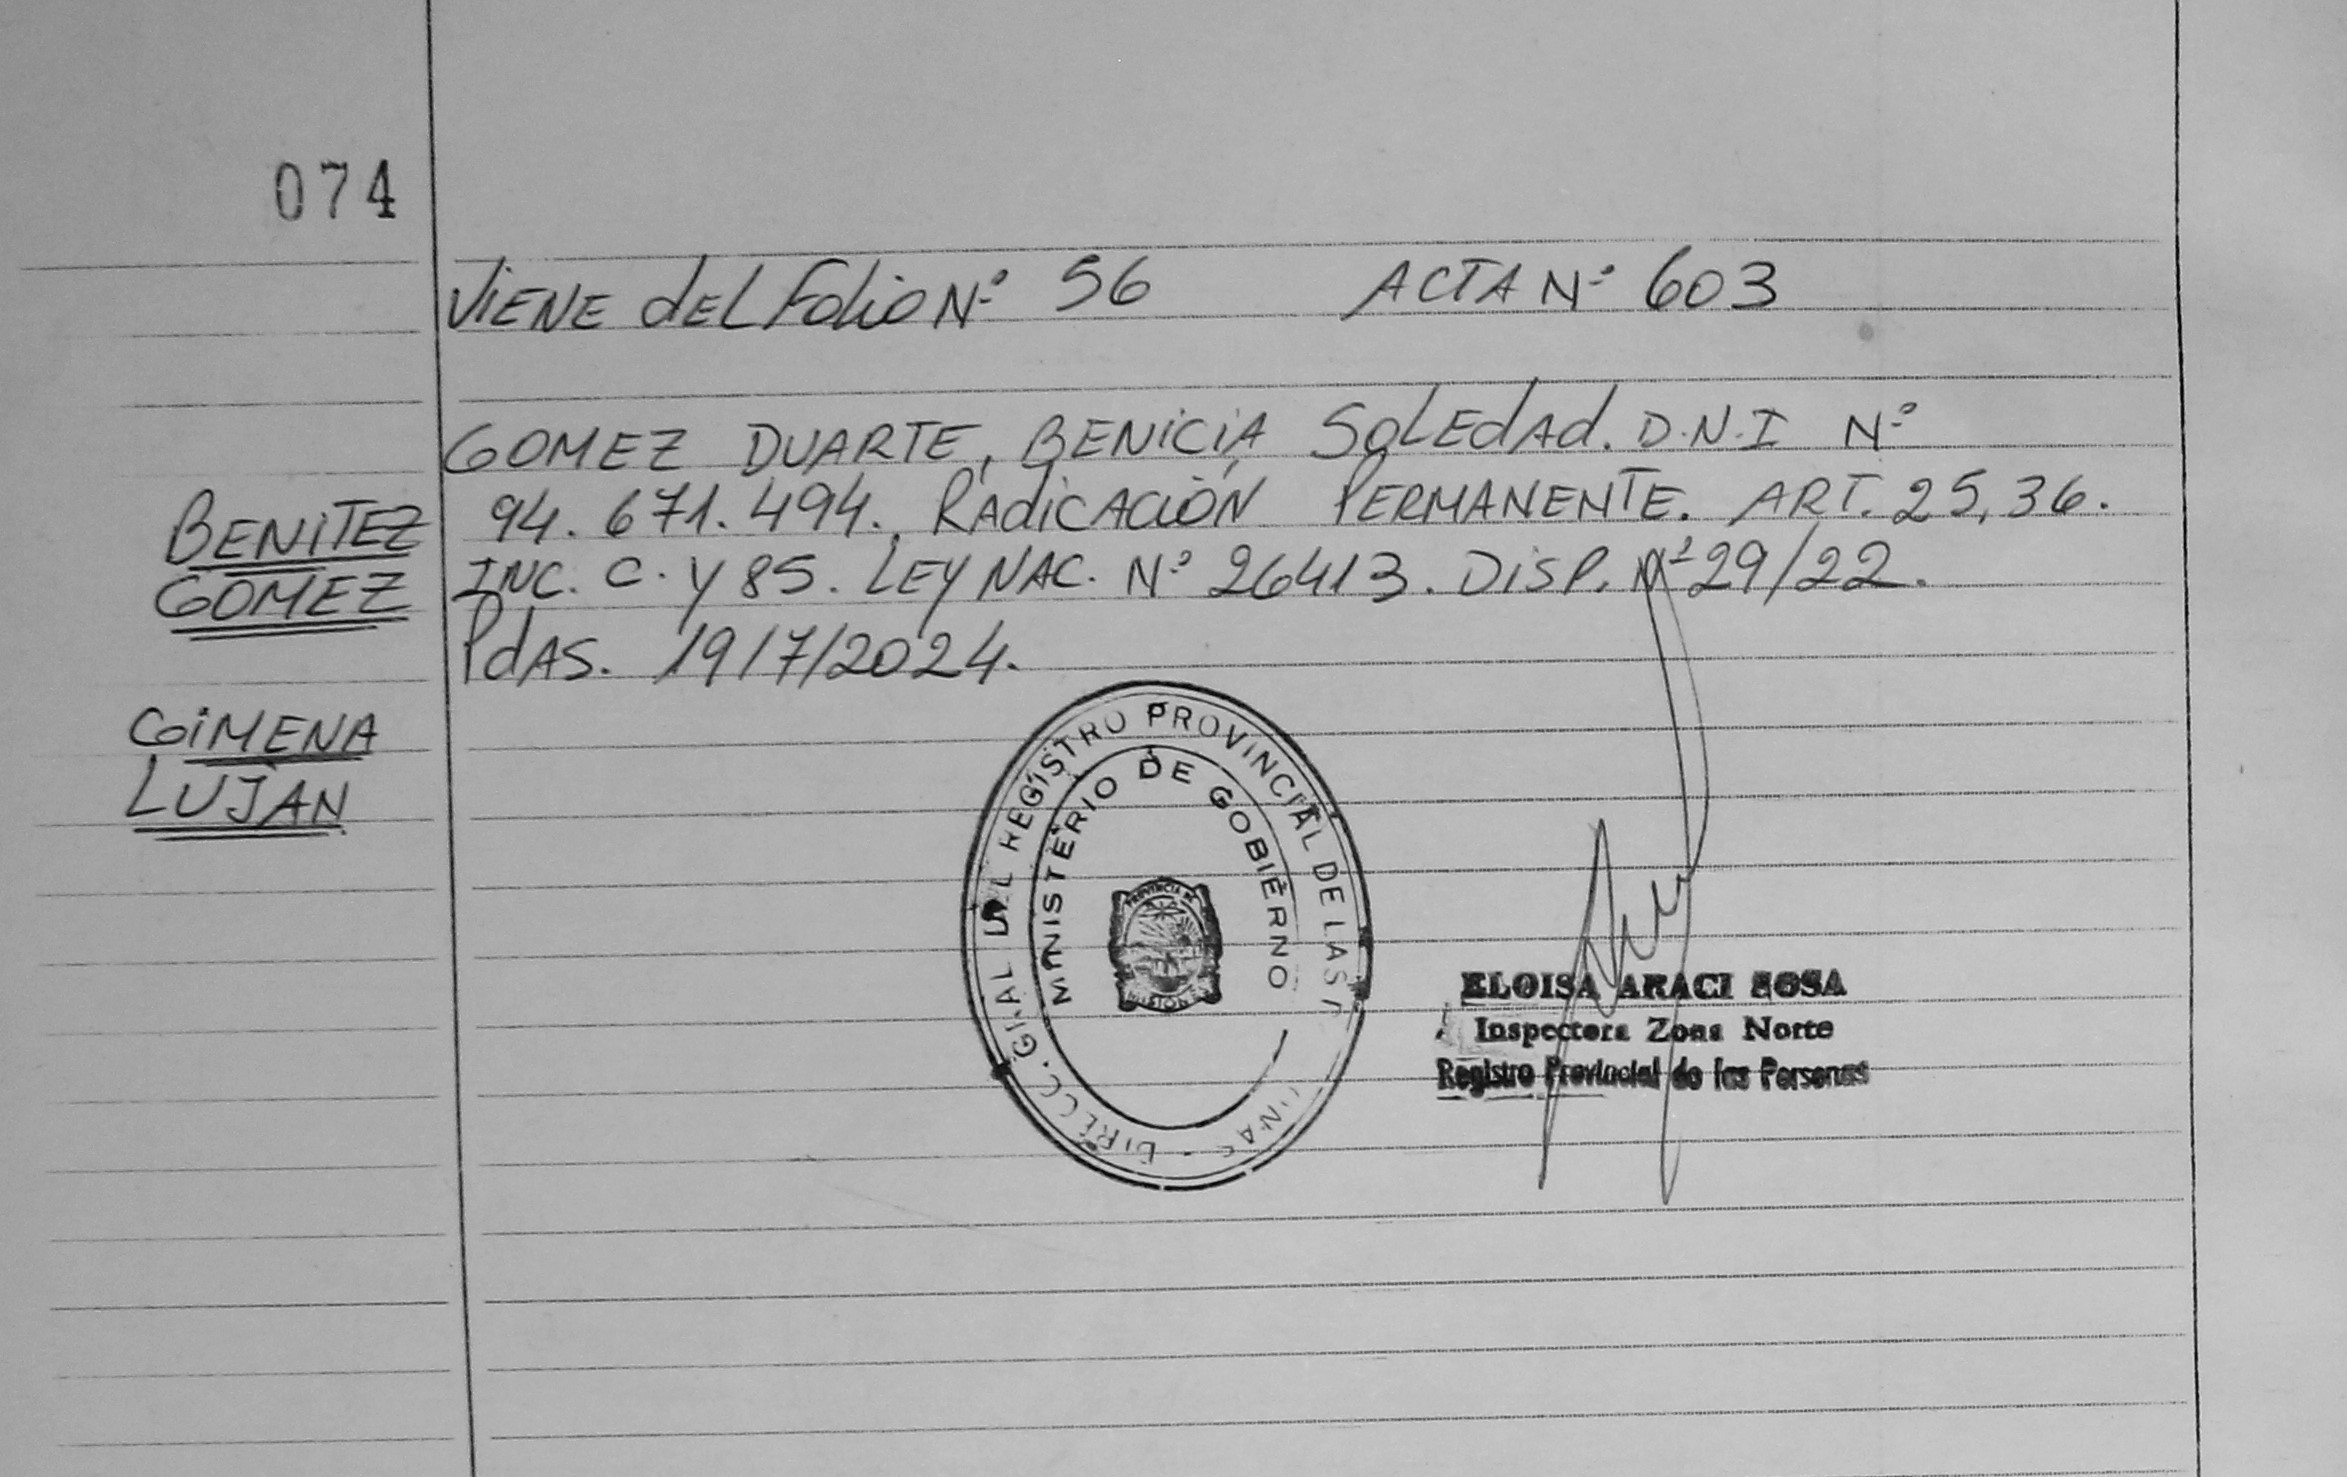 074
VIENE dEL FOLIO N° 56 ACTA N° 603
GOMEZ DUARTE, BENICIA SOLEDAD. D.N.I N°
94.671.494. RADICACIÓN PERMANENTE. ART. 25, 36.
INC. C. Y 85. LEY NAC. N° 26413. DISP. N° 29/22.
PdAS. 19/7/2024.
BENITEZ
GOMEZ
GIMENA
LUJAN
REGISTRO PROVINCIAL DE LAS
MINISTERIO DE GOBIERNO
PROVINCIA DE
MISIONES
ELOISA ARACI SOSA
Inspectora Zona Norte
Registro Provincial de las Personas